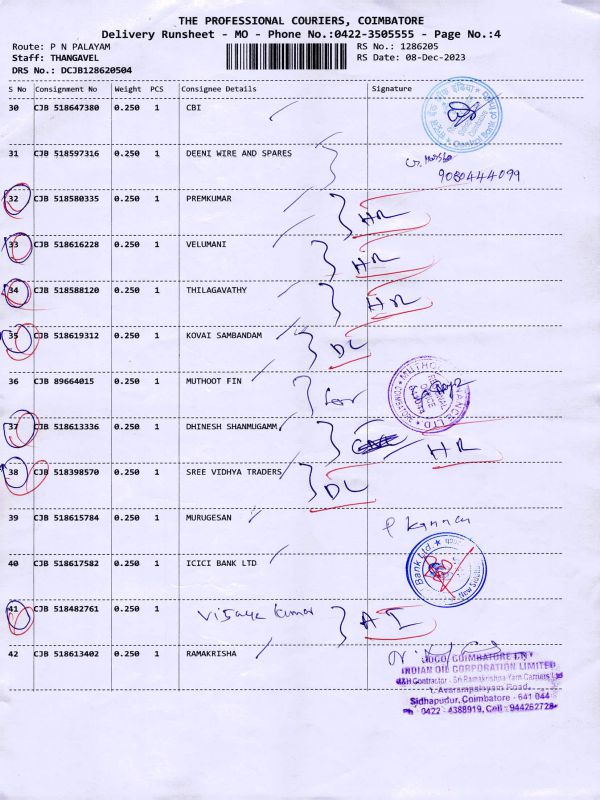 THE PROFESSIONAL COURIERS, COIMBATORE
Delivery Runsheet - MO - Phone No.:0422-3505555 - Page No.:4
Route: P N PALAYAM
RS No.: 1286205
Staff: THANGAVEL
RS Date: 08-Dec-2023
DRS No.: DCJB128620504
S No Consignment No Weight PCS Consignee Details Signature
30 CJB 518647380 0.250 1 CBI
31 CJB 518597316 0.250 1 DEENI WIRE AND SPARES
9080444099
32 CJB 518580335 0.250 1 PREMKUMAR HR
33 CJB 518616228 0.250 1 VELUMANI HR
34 CJB 518588120 0.250 1 THILAGAVATHY HR
35 CJB 518619312 0.250 1 KOVAI SAMBANDAM DL
36 CJB 89664015 0.250 1 MUTHOOT FIN
37 CJB 518613336 0.250 1 DHINESH SHANMUGAMM HR
38 CJB 518398570 0.250 1 SREE VIDHYA TRADERS DL
39 CJB 518615784 0.250 1 MURUGESAN P Kannan
40 CJB 518617582 0.250 1 ICICI BANK LTD
Bank Ltd
41 CJB 518482761 0.250 1 Vijaya kumar AI
42 CJB 518613402 0.250 1 RAMAKRISHA
INDIAN OIL CORPORATION LIMITED
M&H Contractor - Sri Ramakrishna Yarn Carriers Ltd
1, Avarampalayam Road,
Sidhapudur, Coimbatore - 641 044
Ph 0422 - 4388919, Cell : 944262728